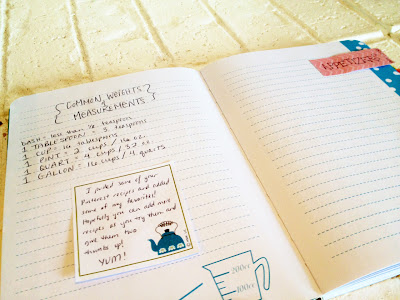 COMMON WEIGHTS
&
MEASUREMENTS
DASH = less than 1/8 teaspoon
1 TABLESPOON = 3 teaspoons
1 CUP = 16 tablespoons
1 PINT = 2 cups / 16 oz.
1 QUART = 4 cups / 32 oz.
1 GALLON = 16 cups / 4 quarts
I pinned some of your
Pinterest recipes and added
some of my favorites!
Hopefully you can add more
recipes as you try them and
give them two
thumbs up!
YUM!
200cc
100cc
APPETIZERS